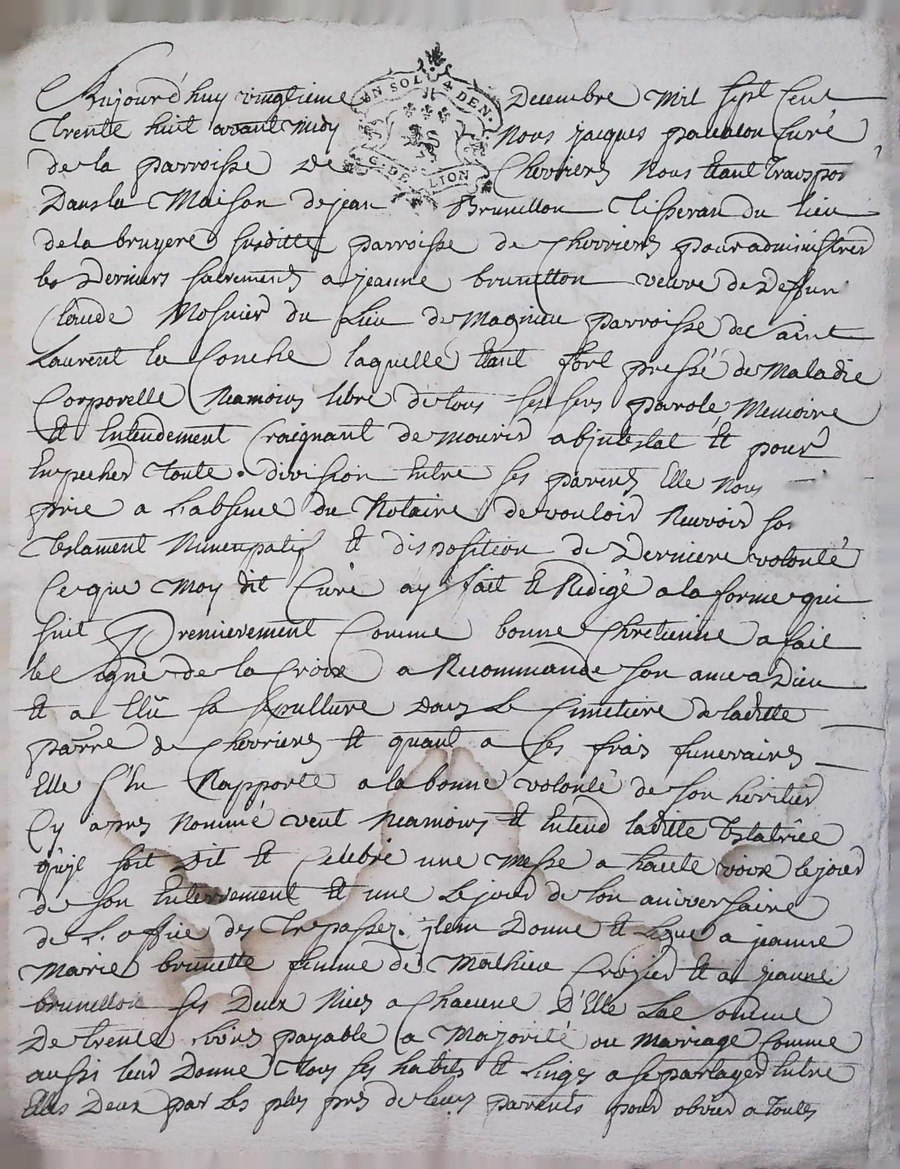 Aujourd'huy vingtieme Decembre Mil sept Cent
UN SOL 4 DEN.
G. DE LION
trente huit avant midy Nous jacques curé
de la parroisse de Chevrieres Nous Etant transpor
Dans la Maison de jean Brunetton tisseran du lieu
de la bruyere susditte parroisse de Chevrieres pour administrer
les Derniers sacrements a jeanne brunetton veuve de Deffun
Claude Mosnier du Lieu de Magnieu parroisse de Saint
Laurent la Conche laquelle Etant fort pressé de Maladie
Corporelle Neamoins libre de tous ses sens parole Memoire
Et Entendement Craignant de mourir abjntestat Et pour
Empecher toute division Entre ses parents Elle nous
prie a L'absence du Notaire de vouloir Recevoir son
testament Nuncupatif Et disposition de Derniere volonté
Ce que Moy dit Curé ay fait Et Redigé a la forme qui
suit Premierement Comme bonne Chretienne a fait
le signe de la Croix a Recommandé son ame a Dieu
Et a Elû sa sepulture Dans Le Cimetiere de laditte
parre de Chevrieres Et quant a ses frais funeraires
Elle s'En Rapporte a la bonne volonté de son heritier
Cy apres Nommé veut Neamoins Et Entend laditte testatrice
qu'il soit dit Et Celebré une Messe a haute voix le jour
de son Enterrement Et une Le jour de son aniversaire
de L'office des trepassez. jtem Donne Et Legue a jeanne
Marie brunette femme de Mathieu Crozier Et a jeanne
brunetton ses Deux Nieces a Chacune D'Elle La somme
De trente Livres payable a Majorité ou Mariage Comme
aussi leur Donne tous ses habits Et Linges a se partager Entre
Elles Deux par Les plus pres de leurs parents pour obvier a toutes